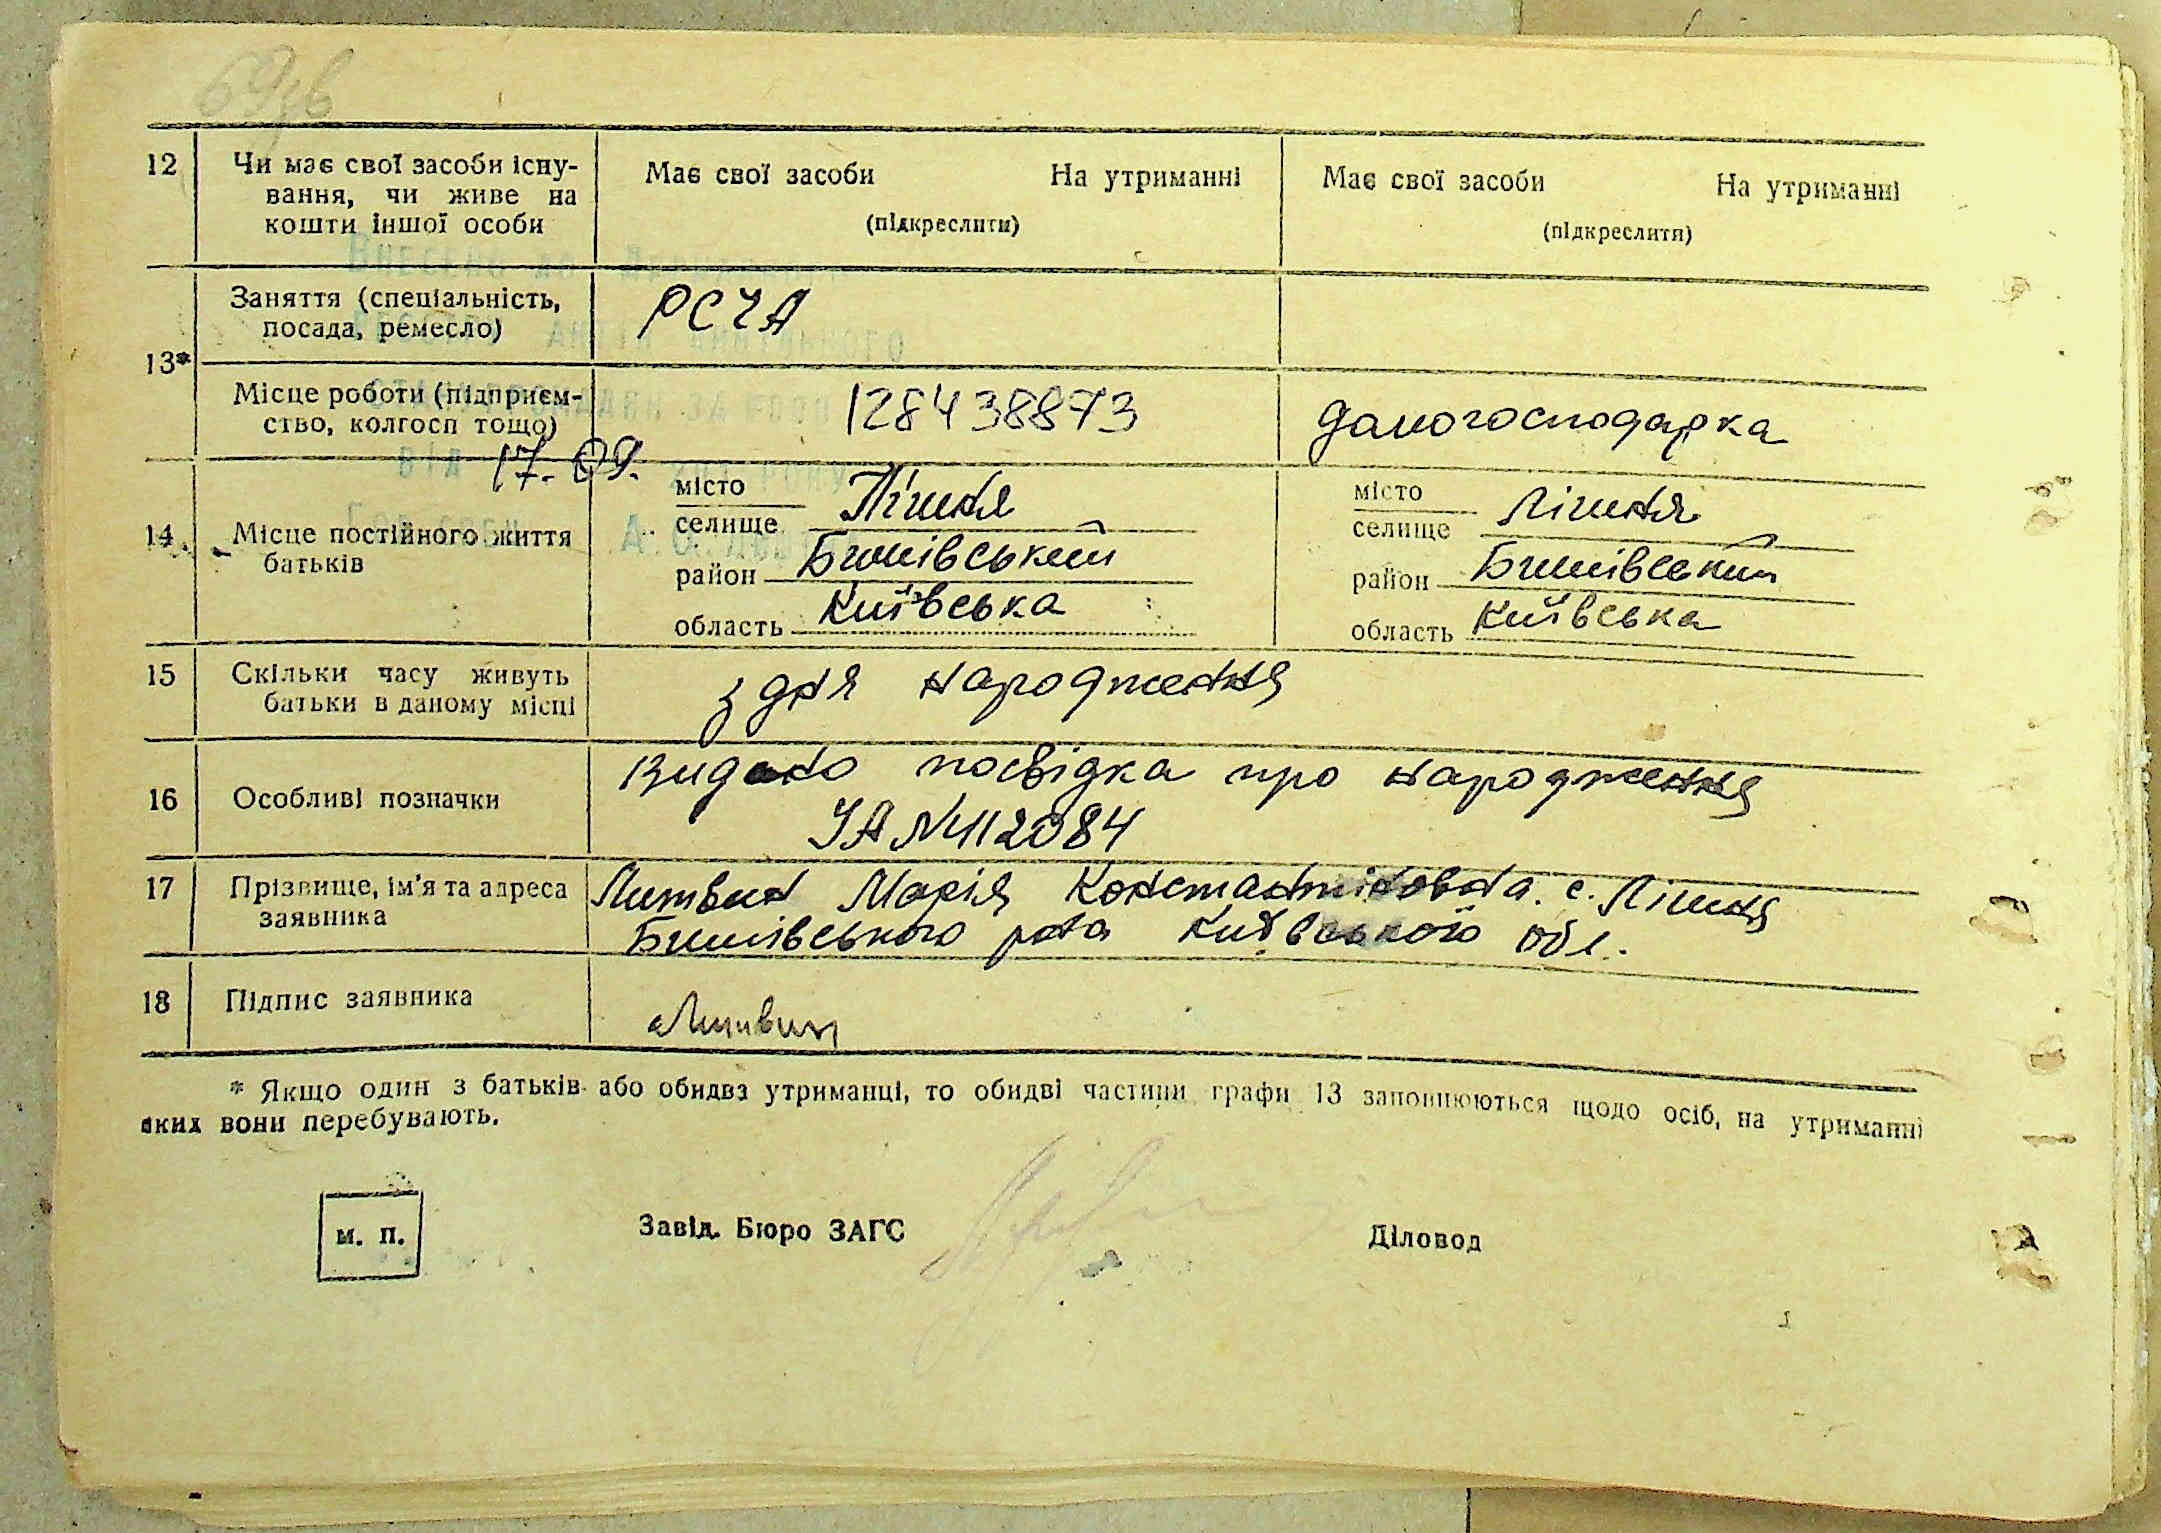 69зв
12 Чи має свої засоби існу- Має свої засоби На утриманні Має свої засоби На утриманні
вання, чи живе на
кошти іншої особи (підкреслити) (підкреслити)
Заняття (спеціальність, РСЧА
посада, ремесло)
13*
Місце роботи (підприєм- 128438873 домогосподарка
ство, колгосп тощо)
17. 09.
місто місто
селище Лішня селище Лішня
14 Місце постійного життя
батьків
район Бишівський район Бишівський
область Київська область Київська
15 Скільки часу живуть з дня народження
батьки в даному місці
16 Особливі позначки Видано посвідка про народження
УА №412084
17 Прізвище, ім'я та адреса Литвин Марія Константіновна. с. Лішня
заявника Бишівського р-на Київської обл.
18 Підпис заявника Литвин
* Якщо один з батьків або обидва утриманці, то обидві частини графи 13 заповнюються щодо осіб, на утриманні
яких вони перебувають.
м. п. Завід. Бюро ЗАГС Діловод